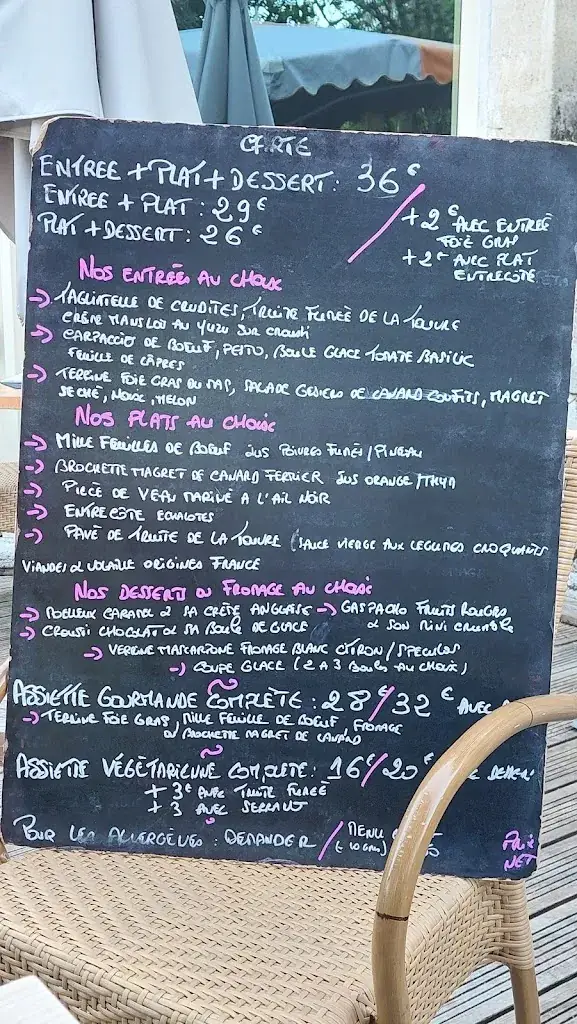 CARTE
ENTREE + PLAT + DESSERT : 36€
ENTREE + PLAT : 29€
PLAT + DESSERT : 26€
+ 2€ AVEC ENTREE
FOIE GRAS
+ 2€ AVEC PLAT
ENTRECOTE
NOS ENTRÉES AU CHOIX
→ TAGLIATELLE DE CRUDITES, TRUITE FUMÉE DE LA TOUVRE
CREME AU YUZU SUR CROUSTI
→ CARPACCIO DE BOEUF, PESTO, BOULE GLACE TOMATE BASILIC
FEUILLE DE CÂPRES
→ TERRINE FOIE GRAS DU PAS, SALADE GESIERS DE CANARD CONFITS, MAGRET
SECHÉ, NOIX, MELON
NOS PLATS AU CHOIX
→ MILLE FEUILLES DE BOEUF JUS POIVRES FUMÉS / PINEAU
→ BROCHETTE MAGRET DE CANARD FERMIER JUS ORANGE / THYM
→ PIECE DE VEAU MARINÉ A L'AIL NOIR
→ ENTRECOTE ECHALOTES
→ PAVÉ DE TRUITE DE LA TOUVRE (SAUCE VIERGE AUX LEGUMES CROQUANTS
VIANDES & VOLAILLE ORIGINES FRANCE
NOS DESSERTS OU FROMAGE AU CHOIX
→ MOELLEUX CARAMEL & SA CRÈME ANGLAISE → GASPACHO FRUITS ROUGES
→ CROUSTI CHOCOLAT & SA BOULE DE GLACE & SON MINI CRUMBLE
→ VERRINE MASCARPONE FROMAGE BLANC CITRON / SPECULOS
→ COUPE GLACE (2 A 3 BOULES AU CHOIX)
ASSIETTE GOURMANDE COMPLÈTE : 28€ / 32€ AVEC
→ TERRINE FOIE GRAS, MILLE FEUILLE DE BOEUF FROMAGE
OU BROCHETTE MAGRET DE CANARD
ASSIETTE VÉGÉTARIENNE COMPLETE : 16€ / 20€ DESSERT
+ 3€ AVEC TRUITE FUMÉE
+ 3 AVEC SERRANO
POUR LES ALLERGENES : DEMANDER / MENU
(- 10 ans)
PRIX
NET